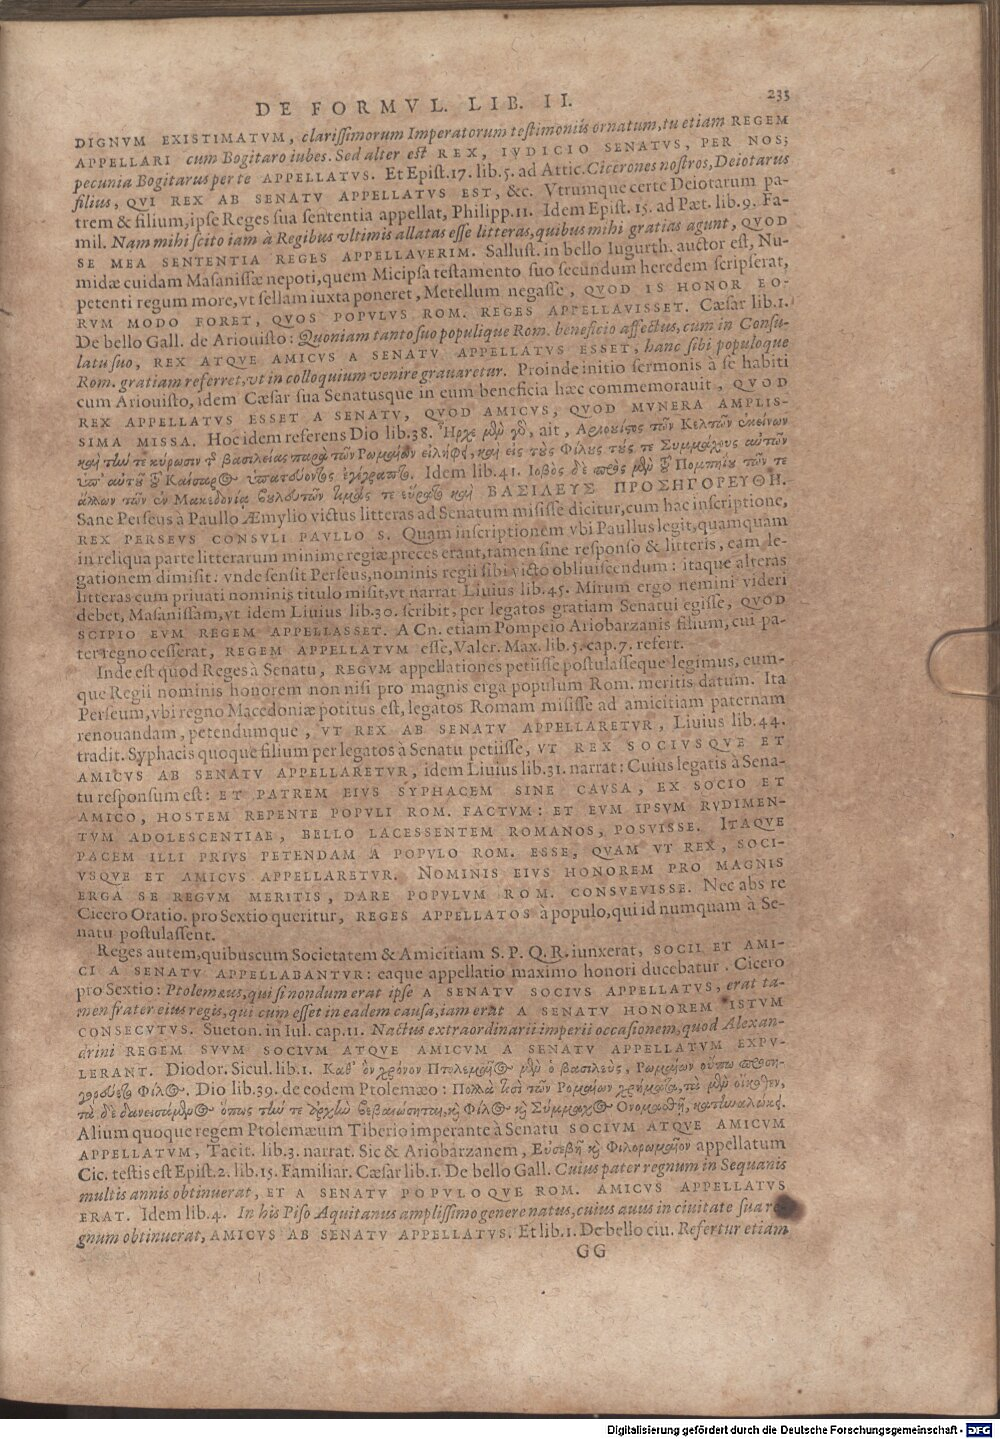 DE FORMVL. LIB. II.
235
DIGNVM EXISTIMATVM, clarissimorum Imperatorum testimoniis ornatum, tu etiam REGEM
APPELLARI cum Bogitaro iubes. Sed alter est REX, IVDICIO SENATVS, PER NOS;
pecunia Bogitarus per te APPELLATVS. Et Epist. 17. lib. 5. ad Attic. Cicerones nostros, Deiotarus
filius, QVI REX AB SENATV APPELLATVS EST, &c. Vtrumque certe Deiotarum pa-
trem & filium, ipse Reges sua sententia appellat, Philipp. 11. Idem Epist. 15. ad Pæt. lib. 9. Fa-
mil. Nam mihi scito iam à Regibus vltimis allatas esse litteras, quibus mihi gratias agunt, QVOD
SE MEA SENTENTIA REGES APPELLAVERIM. Sallust. in bello Iugurth. auctor est, Nu-
midæ cuidam Masanissæ nepoti, quem Micipsa testamento suo secundum heredem scripserat,
petenti regum more, vt sellam iuxta poneret, Metellum negasse, QVOD IS HONOR EO-
RVM MODO FORET, QVOS POPVLVS ROM. REGES APPELLAVISSET. Cæsar lib. 1.
De bello Gall. de Ariouisto: Quoniam tanto suo populique Rom. beneficio affectus, cum in Consu-
latu suo, REX ATQVE AMICVS A SENATV APPELLATVS ESSET, hanc sibi populoque
Rom. gratiam referret, vt in colloquium venire grauaretur. Proinde initio sermonis à se habiti
cum Ariouisto, idem Cæsar sua Senatusque in eum beneficia hæc commemorauit, QVOD
REX APPELLATVS ESSET A SENATV, QVOD AMICVS, QVOD MVNERA AMPLIS-
SIMA MISSA. Hoc idem referens Dio lib. 38. Ἦρχε μὲν γὸ, ait, Αριόυιςος τῶν Κελτῶν ἐκείνων
καὶ τὴν τε κύρωσιν τ̃ βασιλείας παρὰ τῶν Ρωμαίων εἰλήφει, καὶ εἰς τοὺς φίλους τούς τε Συμμάχους αὐτῶν
ὑπ' αὐτοῦ τοῦ Καίσαρος ὑπατεύοντος ἐγέγραπτο. Idem lib. 41. Ιοβὸς δὲ πρὸς μὲν τοῦ Πομπηίου τῶν τε
ἄλλων τῶν ἐν Μακεδονίᾳ βουλευτῶν τιμάς τε εὕρατο καὶ ΒΑΣΙΛΕΥΣ ΠΡΟΣΗΓΟΡΕΥΘΗ.
Sane Perseus à Paullo Æmylio victus litteras ad Senatum misisse dicitur, cum hac inscriptione,
REX PERSEVS CONSVLI PAVLLO S. Quam inscriptionem vbi Paullus legit, quamquam
in reliqua parte litterarum minime regiæ preces erant, tamen sine responso & litteris, eam le-
gationem dimisit: vnde sensit Perseus, nominis regii sibi victo obliuiscendum: itaque alteras
litteras cum priuati nominis titulo misit, vt narrat Liuius lib. 45. Mirum ergo nemini videri
debet, Masanissam, vt idem Liuius lib. 30. scribit, per legatos gratiam Senatui egisse, QVOD
SCIPIO EVM REGEM APPELLASSET. A Cn. etiam Pompeio Ariobarzanis filium, cui pa-
ter regno cesserat, REGEM APPELLATVM esse, Valer. Max. lib. 5. cap. 7. refert.
Inde est quod Reges à Senatu, REGVM appellationes petiisse postulasseque legimus, eum-
que Regii nominis honorem non nisi pro magnis erga populum Rom. meritis datum. Ita
Perseum, vbi regno Macedoniæ potitus est, legatos Romam misisse ad amicitiam paternam
renouandam, petendumque, VT REX AB SENATV APPELLARETVR, Liuius lib. 44.
tradit. Syphacis quoque filium per legatos à Senatu petiisse, VT REX SOCIVSQVE ET
AMICVS AB SENATV APPELLARETVR, idem Liuius lib. 31. narrat: Cuius legatis à Sena-
tu responsum est: ET PATREM EIVS SYPHACEM SINE CAVSA, EX SOCIO ET
AMICO, HOSTEM REPENTE POPVLI ROM. FACTVM: ET EVM IPSVM RVDIMEN-
TVM ADOLESCENTIAE, BELLO LACESSENTEM ROMANOS, POSVISSE. ITAQVE
PACEM ILLI PRIVS PETENDAM A POPVLO ROM. ESSE, QVAM VT REX, SOCI-
VSQVE ET AMICVS APPELLARETVR. NOMINIS EIVS HONOREM PRO MAGNIS
ERGA SE REGVM MERITIS, DARE POPVLVM ROM. CONSVEVISSE. Nec abs re
Cicero Oratio. pro Sextio queritur, REGES APPELLATOS à populo, qui id numquam à Se-
natu postulassent.
Reges autem, quibuscum Societatem & Amicitiam S. P. Q. R. iunxerat, SOCII ET AMI-
CI A SENATV APPELLABANTVR: eaque appellatio maximo honori ducebatur. Cicero
pro Sextio: Ptolemæus, qui si nondum erat ipse A SENATV SOCIVS APPELLATVS, erat ta-
men frater eius regis, qui cum esset in eadem causa, iam erat A SENATV HONOREM ISTVM
CONSECVTVS. Sueton. in Iul. cap. 11. Nactus extraordinarii imperii occasionem, quod Alexan-
drini REGEM SVVM SOCIVM ATQVE AMICVM A SENATV APPELLATVM EXPV-
LERANT. Diodor. Sicul. lib. 1. Καθ' ὃν χρόνον Πτολεμαῖος μὲν ὁ βασιλεὺς, Ρωμαίων οὔπω προση-
γορεύετο φίλος. Dio lib. 39. de eodem Ptolemæo: Πολλὰ τισὶ τῶν Ρομαίων χρήματα, τὰ μὲν οἴκοθεν,
τὰ δὲ δανεισάμενος ὅπως τήν τε ἀρχὴν βεβαιώσηται, καὶ φίλος καὶ Σύμμαχος Ονομασθῇ, κατηναλώκει.
Alium quoque regem Ptolemæum Tiberio imperante à Senatu SOCIVM ATQVE AMICVM
APPELLATVM, Tacit. lib. 3. narrat. Sic & Ariobarzanem, Εὐσεβῆ καὶ Φιλορωμαῖον appellatum
Cic. testis est Epist. 2. lib. 15. Familiar. Cæsar lib. 1. De bello Gall. Cuius pater regnum in Sequanis
multis annis obtinuerat, ET A SENATV POPVLOQVE ROM. AMICVS APPELLATVS
ERAT. Idem lib. 4. In his Piso Aquitanus amplissimo genere natus, cuius auus in ciuitate sua re-
gnum obtinuerat, AMICVS AB SENATV APPELLATVS. Et lib. 1. De bello ciu. Refertur etiam
GG
Digitalisierung gefördert durch die Deutsche Forschungsgemeinschaft - DFG